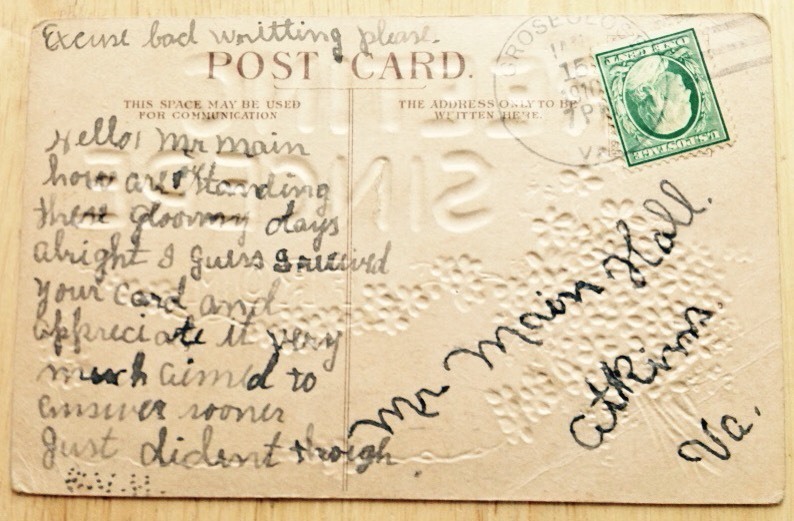 Excuse bad writting please.
POST CARD.
THIS SPACE MAY BE USED
FOR COMMUNICATION
THE ADDRESS ONLY TO BE
WRITTEN HERE.
Hello! Mr Main
how are standing
these gloomy days
alright I guess I received
your card and
appreciate it very
much aimed to
answer sooner
Just dident though
Mr Main Hall.
Atkins
Va.
15
1910
VA
U.S. POSTAGE